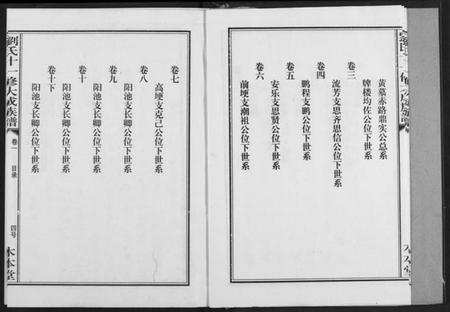 黄墓赤路鼎实公总系
卷三
牌楼均佐公位下世系
卷四
流芳支思齐思信公位下世系
卷五
鹏程支鹏公位下世系
卷六
安乐支思贤公位下世系
前埂支潮祖公位下世系
卷七
高埂支克己公位下世系
卷八
阳池支长卿公位下世系
卷九
阳池支长卿公位下世系
卷十
阳池支长卿公位下世系
卷十下
阳池支长卿公位下世系
劉氏十一修大成族譜
卷一
目录
四号
木本堂